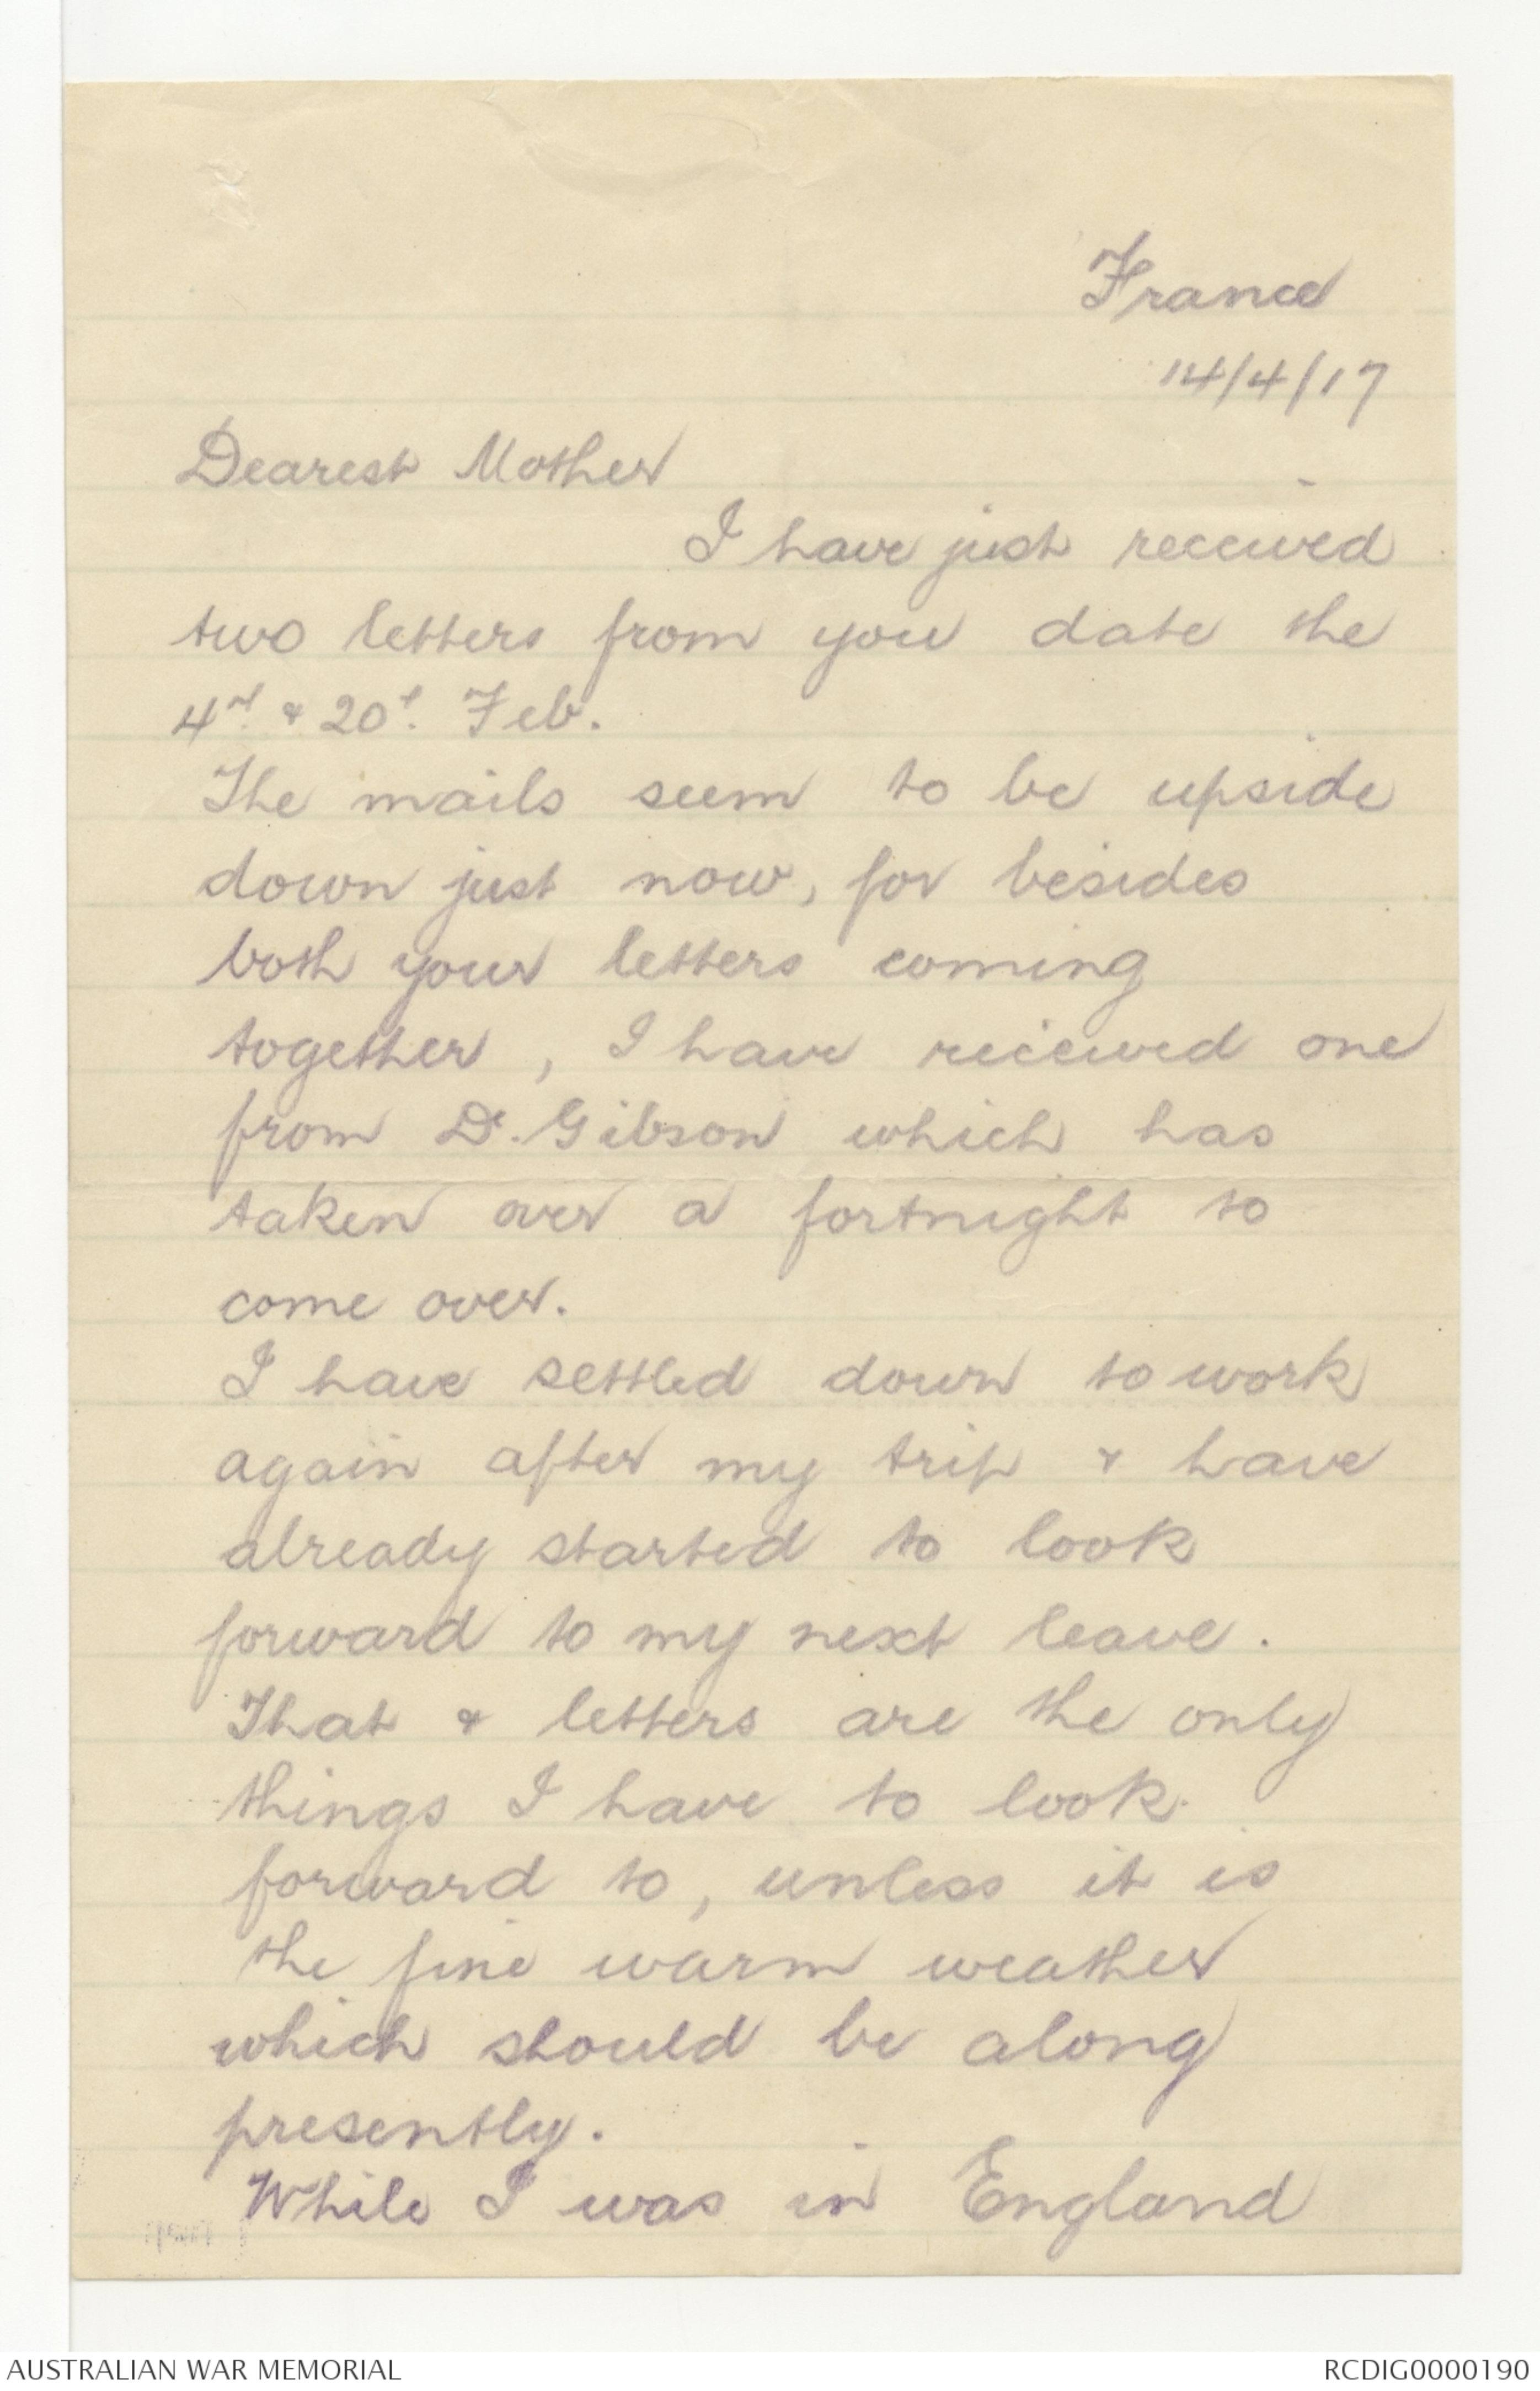 France
14/4/17
Dearest Mother
I have just received
two letters from you date the
4th & 20th. Feb.
The mails seem to be upside
down just now, for besides
both your letters coming
together, I have received one
from Dr. Gibson which has
taken over a fortnight to
come over.
I have settled down to work
again after my trip & have
already started to look
forward to my next leave.
That & letters are the only
things I have to look
forward to, unless it is
the fine warm weather
which should be along
presently.
While I was in England
AUSTRALIAN WAR MEMORIAL
RCDIG0000190